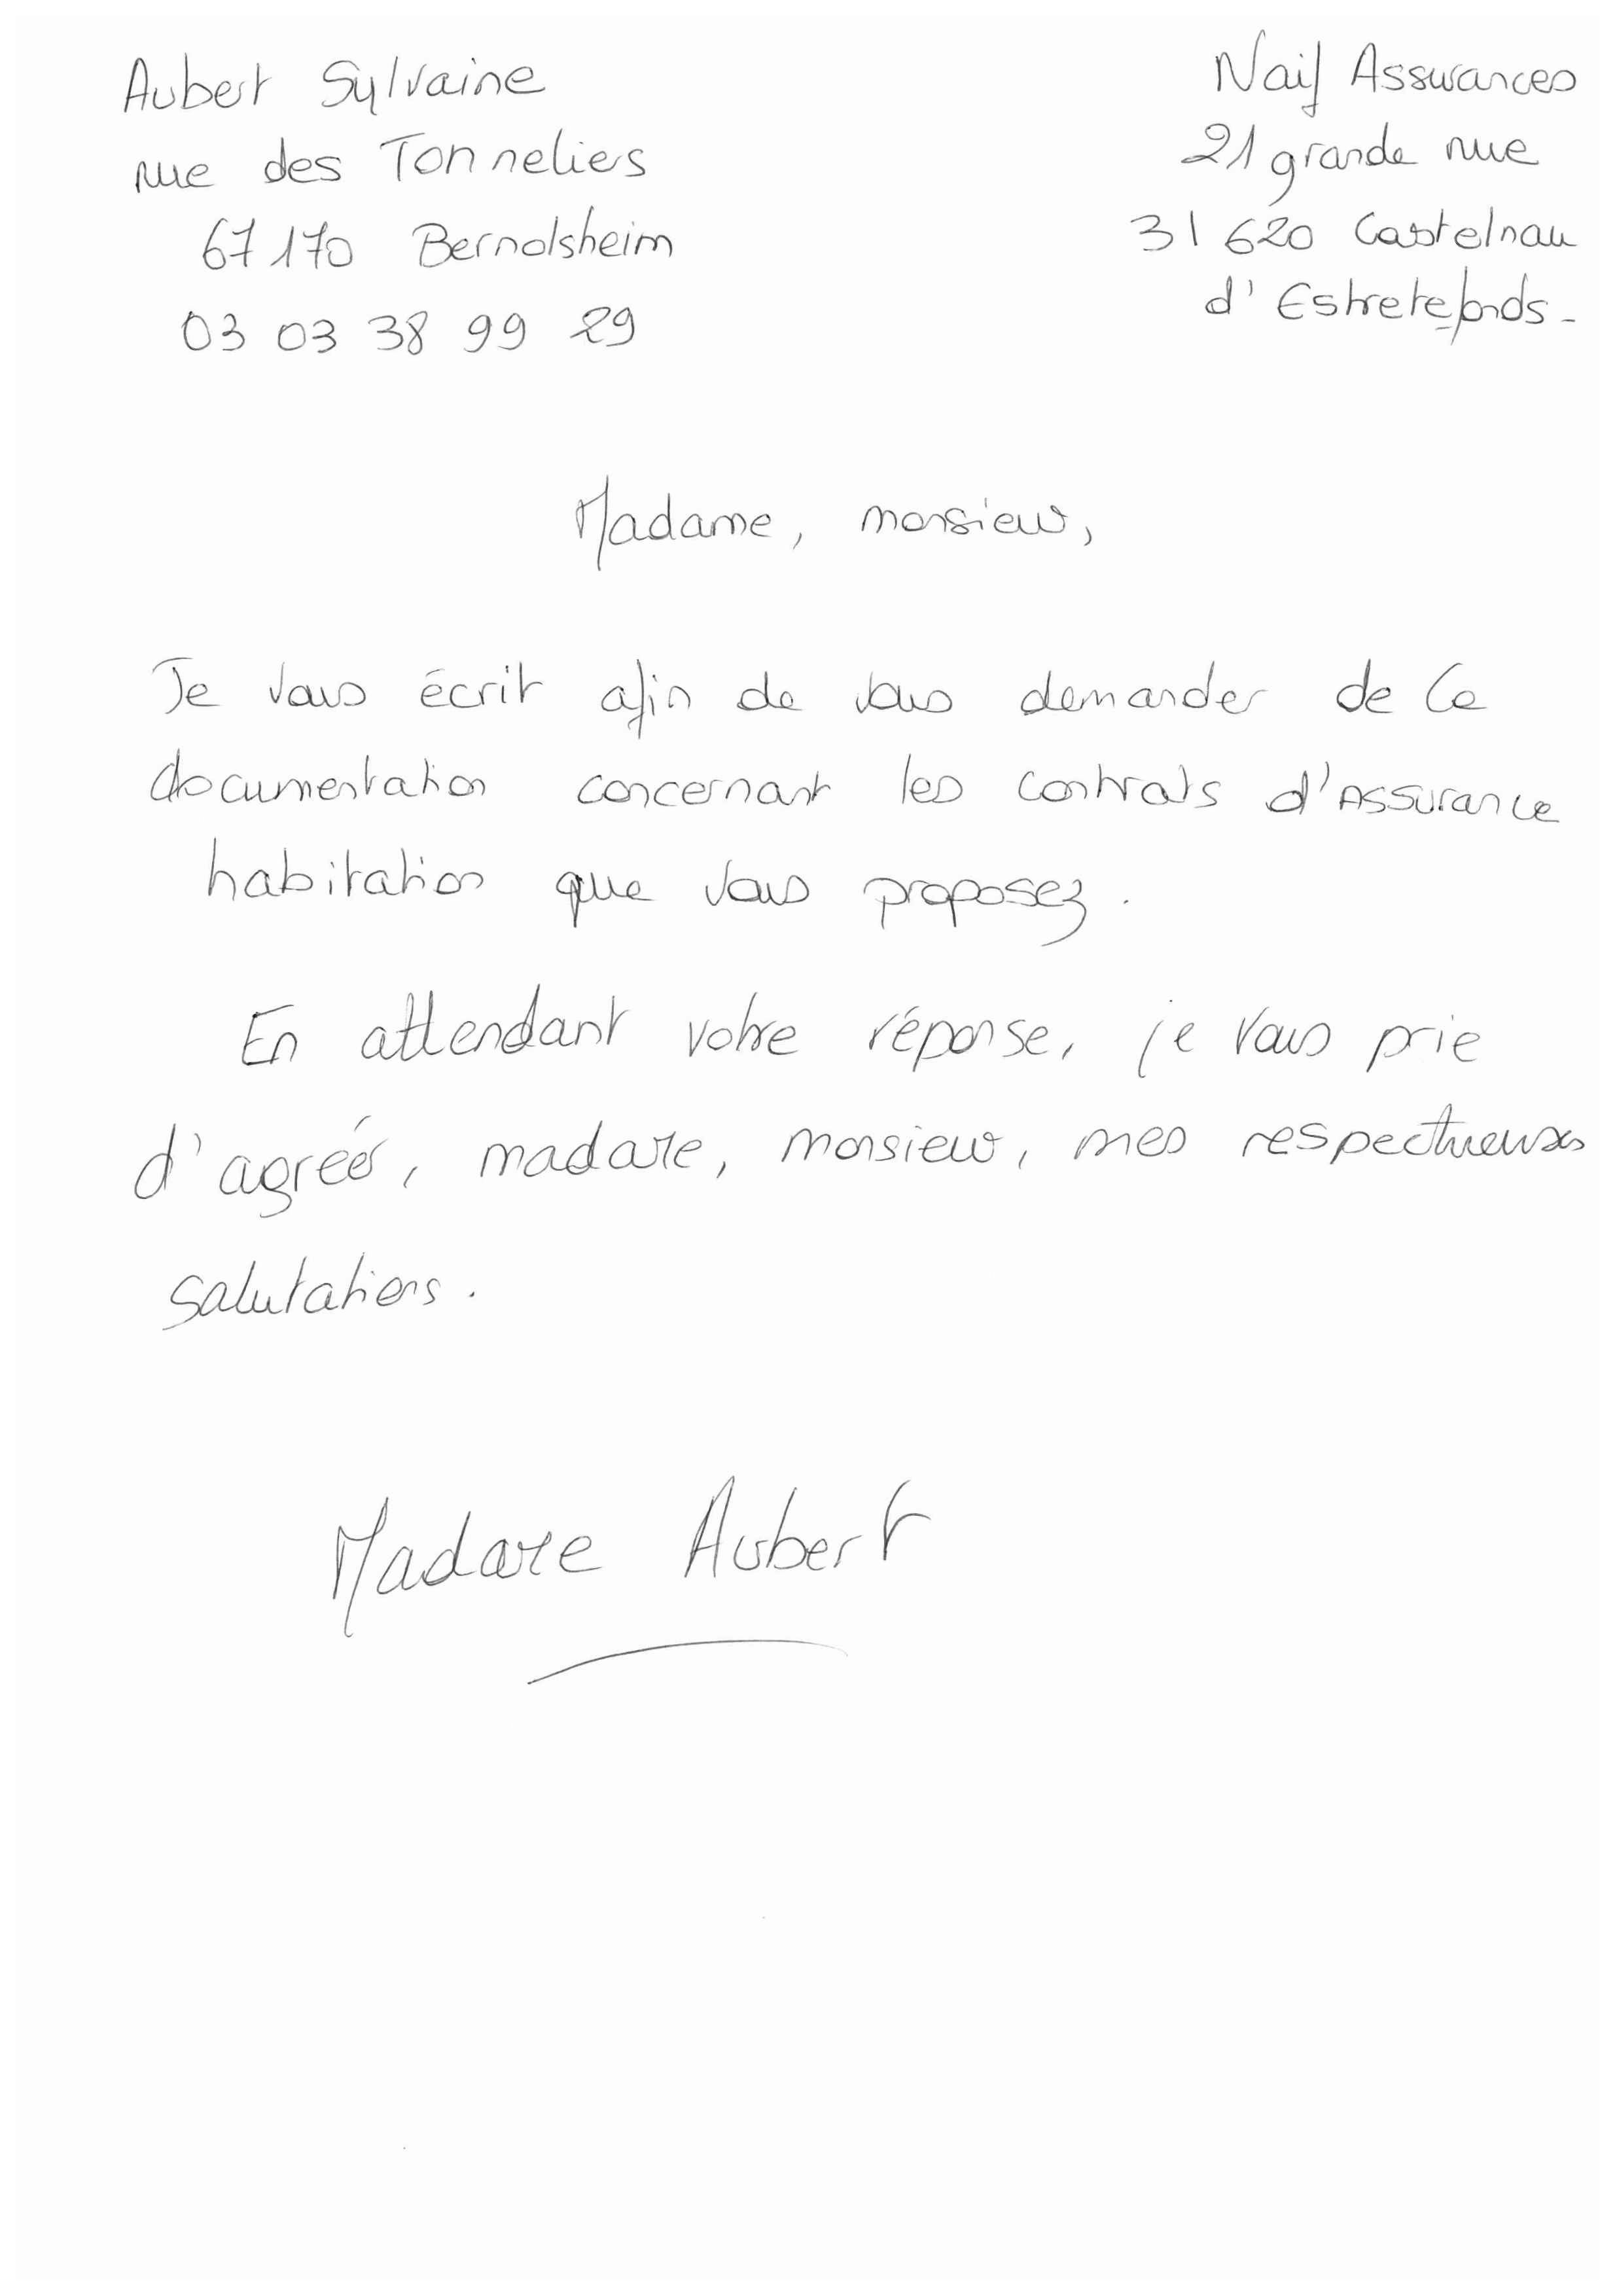 Aubert Sylvaine
rue des Tonneliers
67170 Bernolsheim
03 03 38 99 29
Naif Assurances
21 grande rue
31 620 Castelnau
d'Estretefonds-
Madame, monsieur,
Je vous écrit afin de vous demander de la
documentation concernant les contrats d'Assurance
habitation que vous proposez.
En attendant votre réponse, je vous prie
d'agréer, madame, monsieur, mes respectueuses
salutations.
Madame Aubert